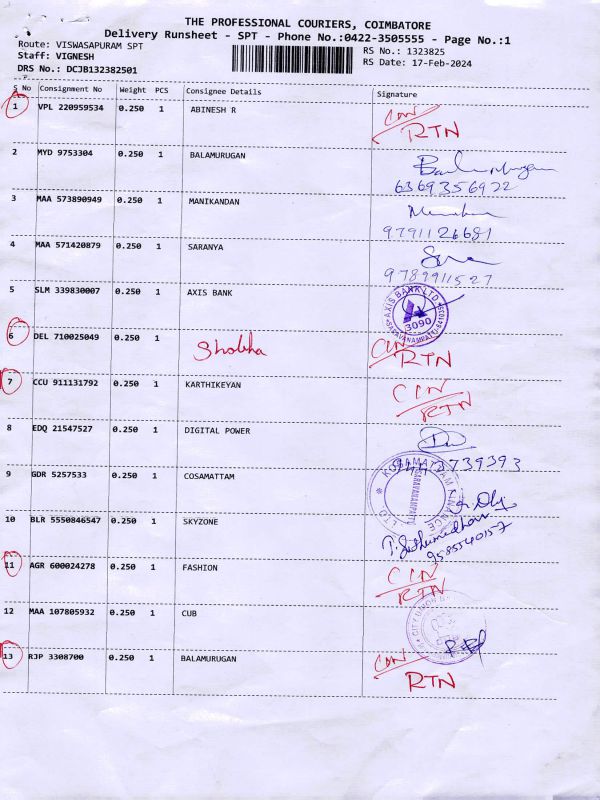 THE PROFESSIONAL COURIERS, COIMBATORE
Delivery Runsheet - SPT - Phone No.:0422-3505555 - Page No.:1
Route: VISWASAPURAM SPT
Staff: VIGNESH
DRS No.: DCJB132382501
RS No.: 1323825
RS Date: 17-Feb-2024
S No Consignment No Weight PCS Consignee Details Signature
1 VPL 220959534 0.250 1 ABINESH R
RTN
2 MYD 9753304 0.250 1 BALAMURUGAN
6369356922
3 MAA 573890949 0.250 1 MANIKANDAN
9791126681
4 MAA 571420879 0.250 1 SARANYA
9789911527
5 SLM 339830007 0.250 1 AXIS BANK
AXIS BANK LTD
3090
6 DEL 710025049 0.250 1 Shobha CIN
RTN
7 CCU 911131792 0.250 1 KARTHIKEYAN CIN
RTN
8 EDQ 21547527 0.250 1 DIGITAL POWER
9 GDR 5257533 0.250 1 COSAMATTAM
KOSAMATTAM FINANCE LTD
SARAVANAMPATTY
10 BLR 5550846547 0.250 1 SKYZONE
9585540157
11 AGR 600024278 0.250 1 FASHION CIN
RTN
12 MAA 107805932 0.250 1 CUB
13 RJP 3308700 0.250 1 BALAMURUGAN
RTN